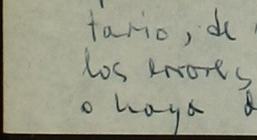 tario, de
los errores,
o haya d